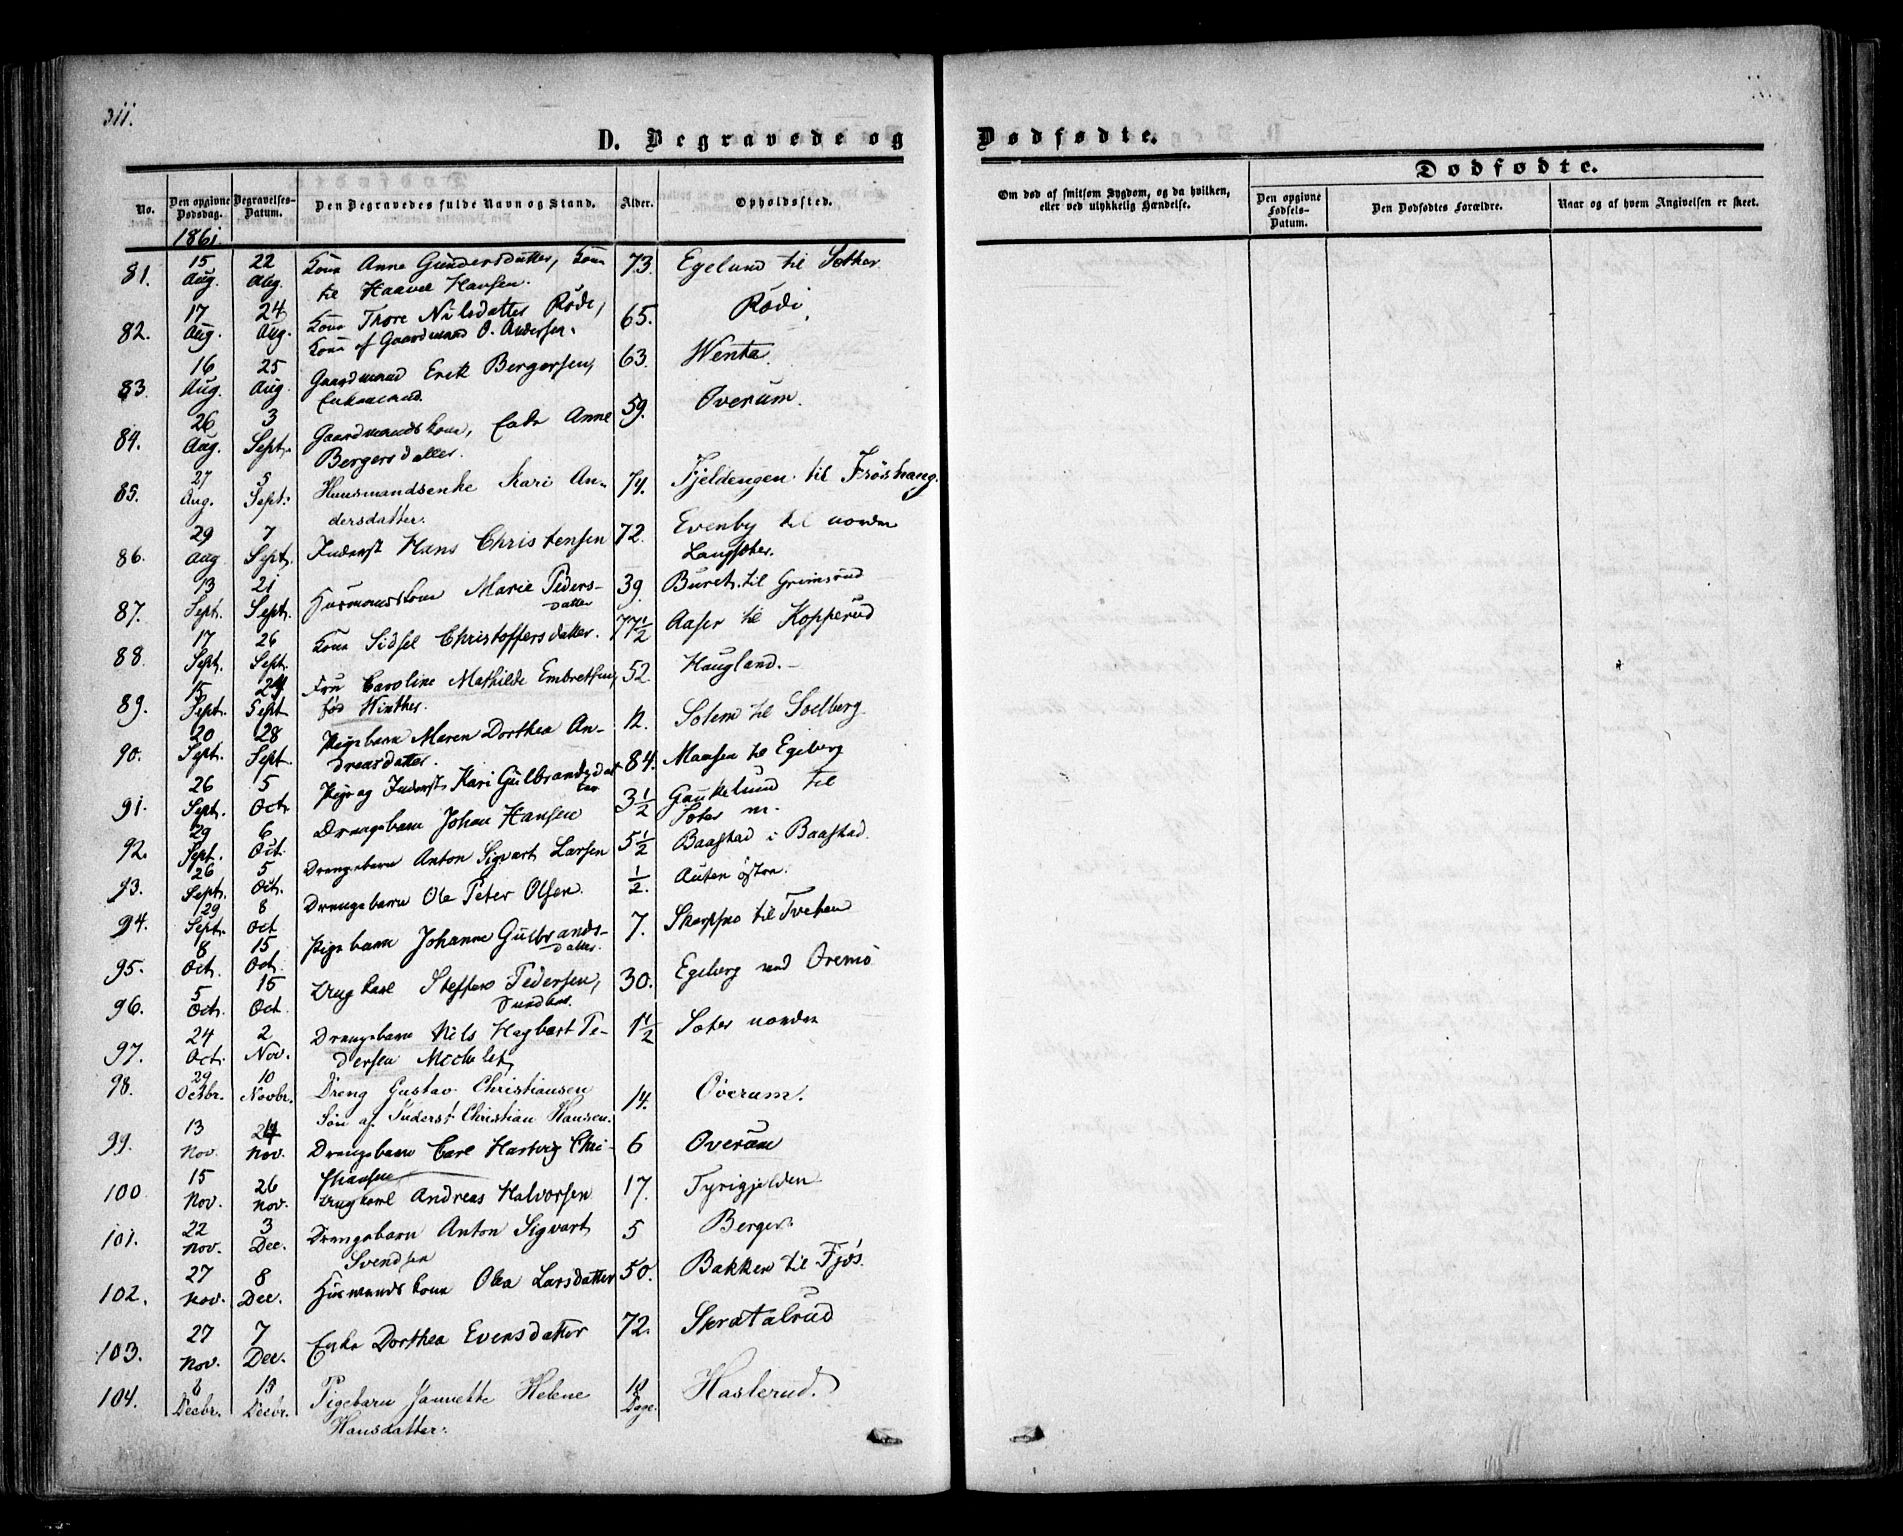 311.
D. Begravede og
Dødfødte.
No.
Den opgivne Dødsdag.
Begravelses-Datum.
Den Begravedes fulde Navn og Stand.
Alder.
Opholdssted.
Om død af smitsom Sygdom, og da hvilken, eller ved ulykkelig Hændelse.
Dødfødte.
Den opgivne Fødsels-Datum.
Den Dødfødtes Forældre.
Naar og af hvem Angivelsen er skeet.
1861.
81. 15 Aug. 22 Aug. Kone Anne Gundersdatter, Kone 73. Egelund til Sother
til Haavel Hansen.
82. 17 Aug. 24 Aug. Kone Thore Nilsdatter Rødi, 65. Rødi,
Kone af Gaardmand O. Andersen.
83. 16 Aug. 25 Aug. Gaardmand Erik Bergersen, 63. Wenta.
Enkemand.
84. 26 Aug. 3 Sept. Gaardmandskone, Enke Anne 59. Overum.
Bergersdatter.
85. 27 Aug. 5 Sept. Huusmandsenke Kari An- 74. Fjeldengen til Frøshaug.
dersdatter.
86. 29 Aug 7 Sept. Inderst Hans Christensen 72. Evenby til norden
Langsæter.
87. 13 Sept. 21 Sept. Husmandskone Marie Peders- 39. Buret til Grimsrud
datter
88. 17 Sept. 26 Sept. Kone Sidsel Christoffersdatter. 77½ Aaser til Kopperud
89. 15 Sept. 24 Sept Fru Caroline Mathilde Embretsen, 52. Haugland.
fød Winther.
90. 20 Sept. 28 Sept. Pigebarn Maren Dorthea An- 12. Solem til Solberg
dreasdatter.
91. 26 Sept. 5 Oct. Pige og Inderst Kari Gulbrandsdat 84. Mansen til Egeberg
ter
92. 29 Sept. 6 Oct. Drengebarn Johan Hansen 3½ Gaukelund til
Soter m.
93. 26 Sept. 5 Oct. Drengebarn Anton Sigvart Larsen 5½ Baastad i Baastad.
94. 29 Sept. 8 Oct Drengebarn Ole Peter Olsen. ½. Auten østre.
95. 8 Oct. 15 Oct. Pigebarn Johanne Gulbrands- 7. Skarpsno til Tveten
datter.
96. 5 Oct. 15 Oct. Ungkarl Steffen Pedersen, 30. Egeberg
97. 24 Oct. 2 Nov. Drengebarn Nils Hagbart Pe- 1½ Soter norden
dersen Michelet
98. 29 Octbr. 10 Novbr. Dreng Gustav Christiansen 14. Overum.
Søn af Inderst Christian Hansen.
99. 13 Nov. 24 Nov. Drengebarn Carl Hartvig Chri- 6 Overum
stiansen
100 15 Nov. 26 Nov. Ungkarl Andreas Halvorsen 17. Tyrigjelden
101. 22 Nov. 3 Dec. Drengebarn Anton Sigvart 5 Berger
Svendsen
102. 27 Nov. 8 Dec. Husmandskone Olea Larsdatter 50. Bakken til Fjøs.
103. 27 Nov. 7 Dec. Enke Dorthea Evensdatter 72. Skratalrud
104. 8 Decbr. 19 Decbr. Pigebarn Jannette Helene 10 Dage. Haslerud.
Hansdatter.